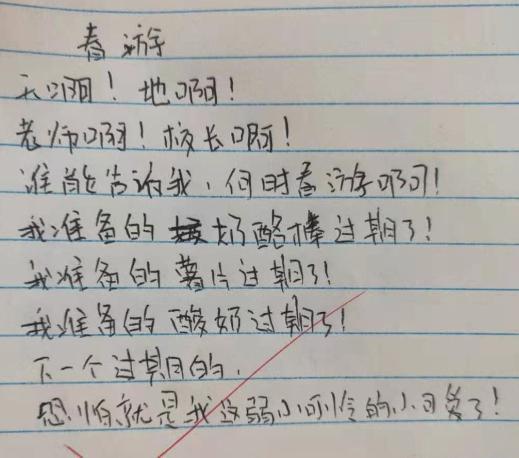 春游
天啊！地啊！
老师啊！校长啊！
谁能告诉我，何时春游啊！
我准备的奶酪棒过期了！
我准备的薯片过期了！
我准备的酸奶过期了！
下一个过期的，
恐怕就是我这弱小可怜的小可爱了！